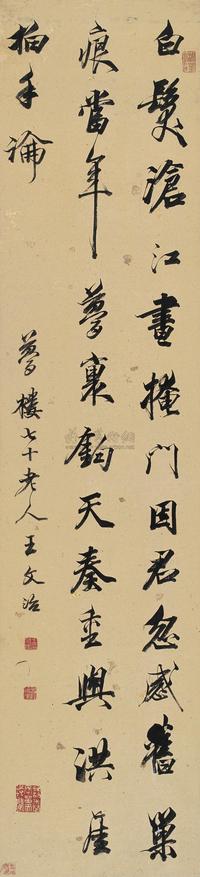 白髮滄江晝掩門因君忽感舊巢
痕當年夢裏鈞天奏重與洪崖
拍手論
夢樓七十老人王文治